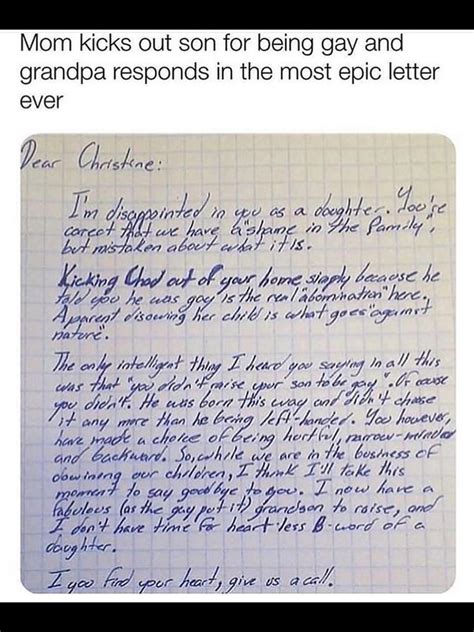 Mom kicks out son for being gay and
grandpa responds in the most epic letter
ever
Dear Christine:
I'm disappointed in you as a daughter. You're
corect that we have "a shame in the family",
but mistaken about what it is.
Kicking Chad out of your home simply because he
told you he was gay is the real "abomination" here.
A parent disowning her child is what goes "against
nature".
The only intelligent thing I heard you saying in all this
was that "you didn't raise your son to be gay". Of cause
you didn't. He was born this way and didn't choose
it any more than he being left-handed. You however,
have made a choice of being hurtful, narrow-minded
and backward. So, while we are in the business of
disowning our children, I think I'll take this
moment to say goodbye to you. I now have a
fabulous (as the gay put it) grandson to raise, and
I don't have time for heart-less B-word of a
daughter.
I you find your heart, give us a call.